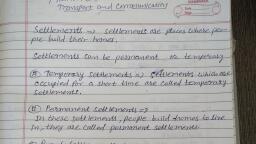 Transport and Communication
Settlements => settlements are places where peo-
ple build their homes.
Settlements can be permanent or temporary
(A) Temporary settlements => settlements which are
occupied for a short time are called temporary
settlements.
(B) Permanent settlements =>
In these settlements, people build homes to live
in, they are called permanent settlements